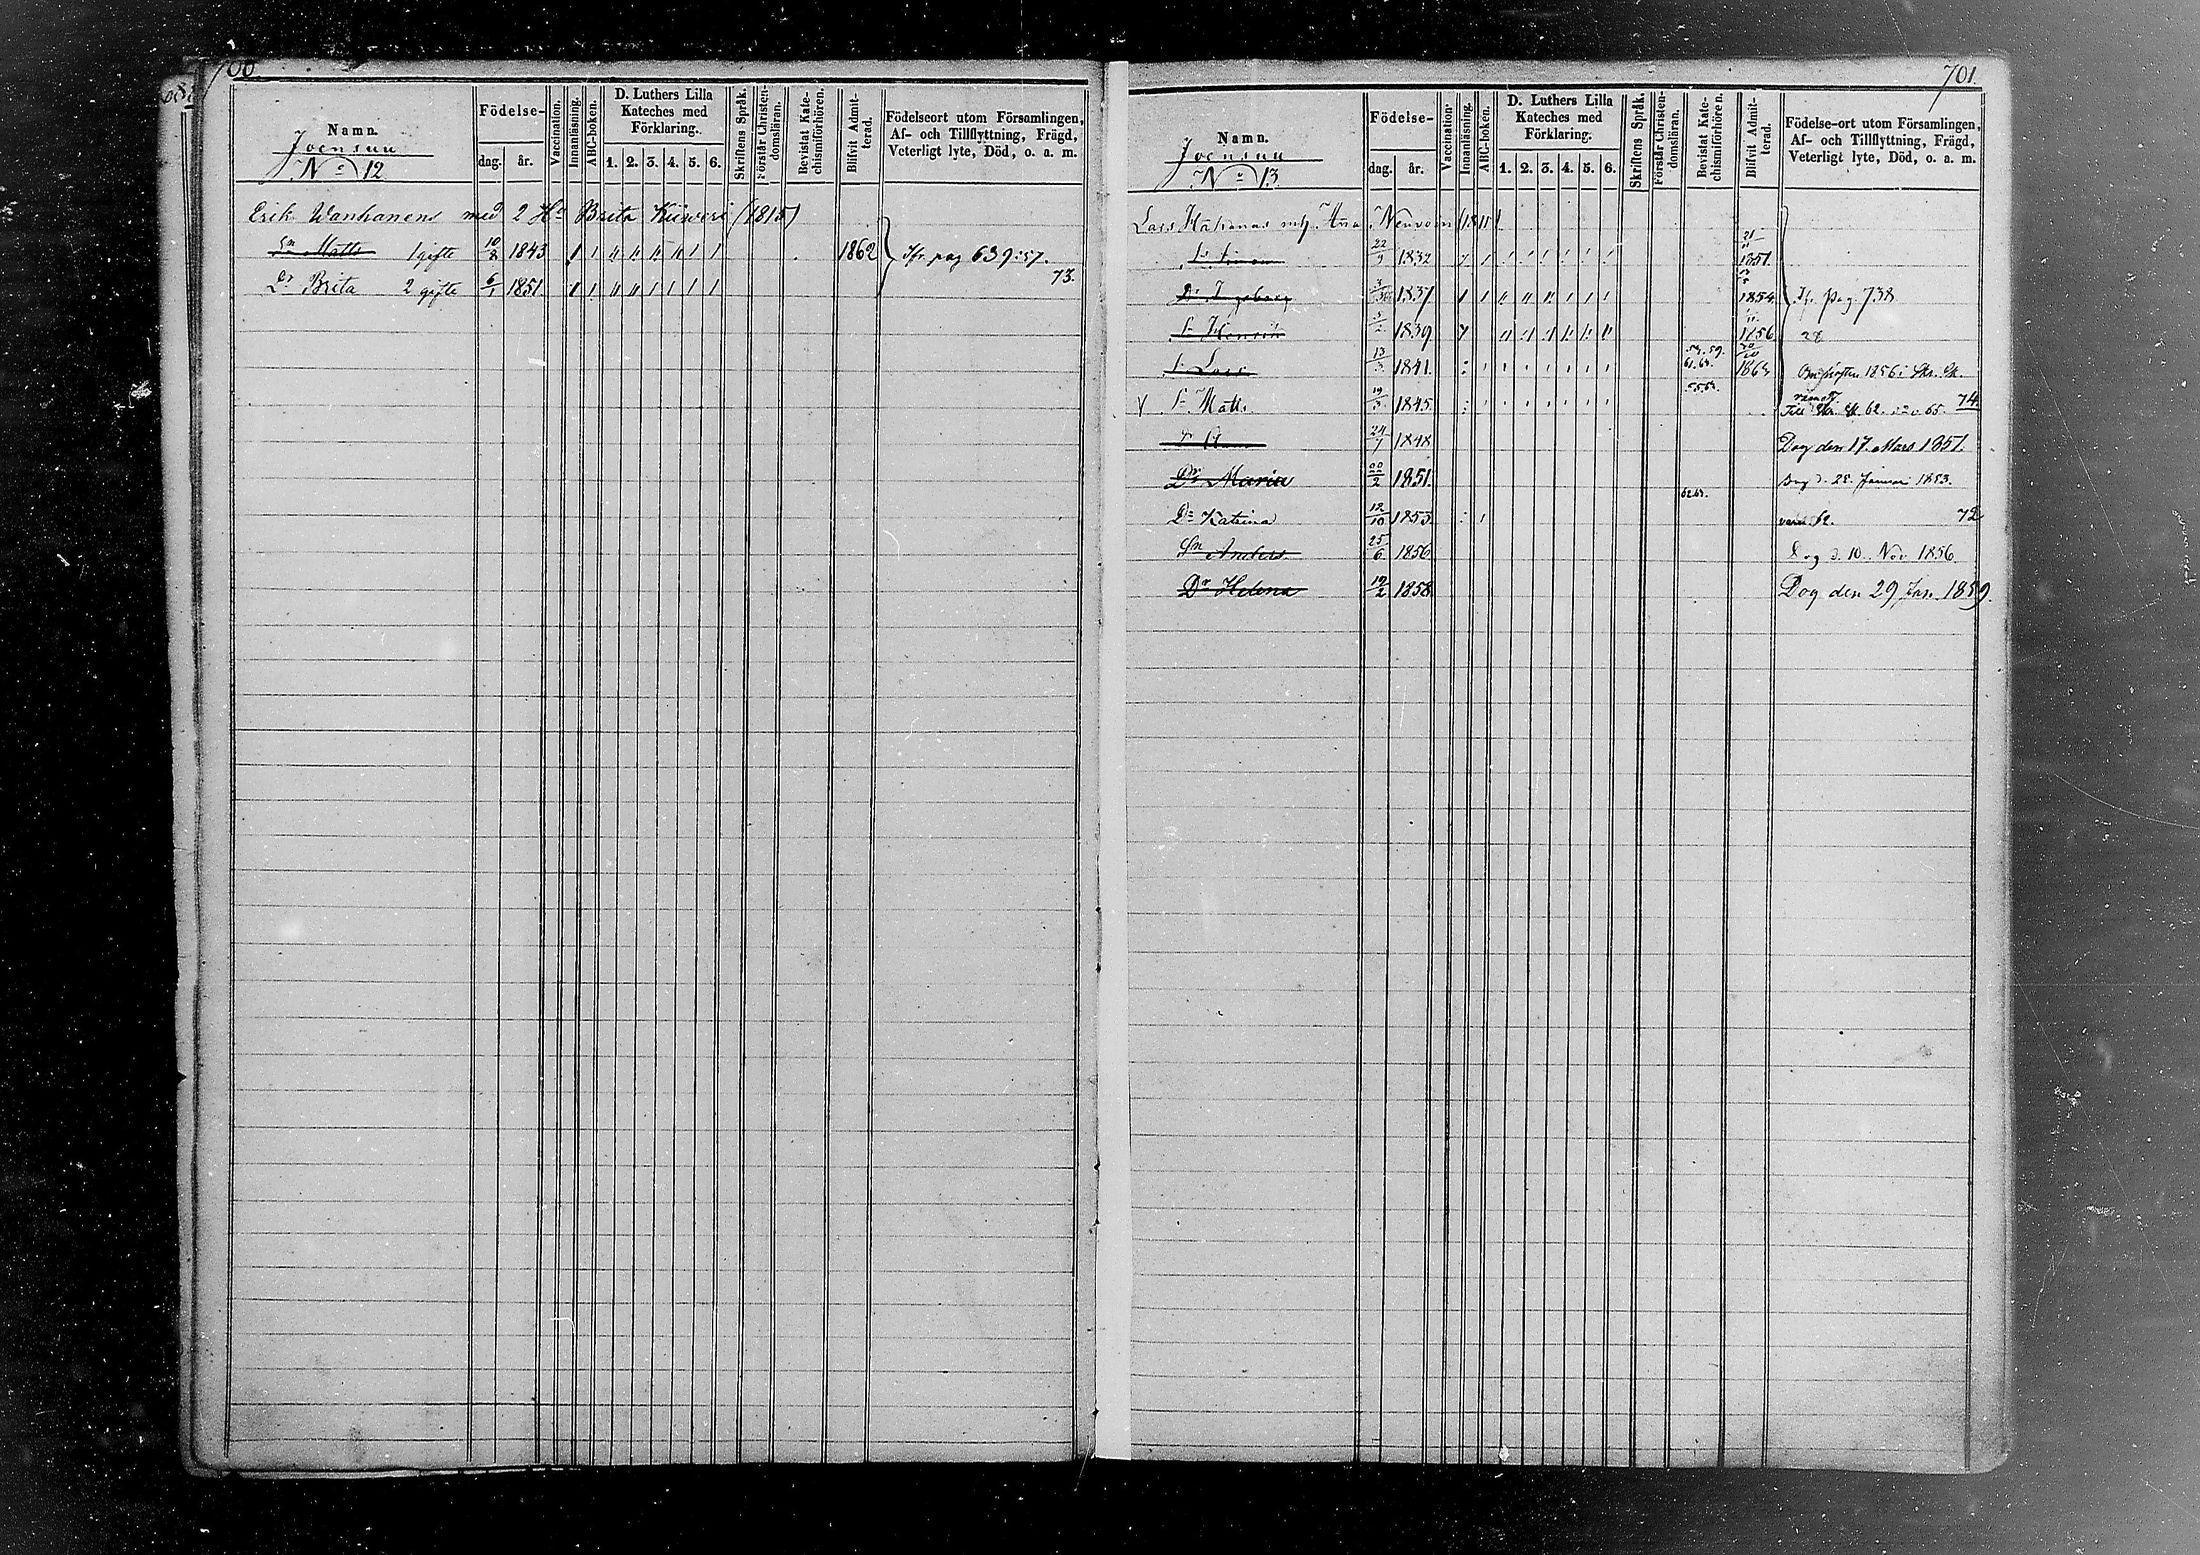 700.
Namn.
Joensuu
No 12
Födelse-
dag. år.
Vaccination.
Innanläsning.
ABC-boken.
D. Luthers Lilla
Kateches med
Förklaring.
1. 2. 3. 4. 5. 6.
Skriftens Språk.
Förstår Christen-
domsläran.
Bevistat Kate-
chismiförhören.
Blifvit Admit-
terad.
Födelseort utom Församlingen,
Af- och Tillflyttning, Frägd,
Veterligt lyte, Död, o. a. m.
Erik Wanhanens med 2 Hu Brita Kiiveri (1815)
Sn Matts 1 gifte 10/2 1843 1862 Jfr pag 639:57.
Dr Brita 2 gifte 6/1 1851 73.
701.
Namn.
Joensuu
No 13
Födelse-
dag. år.
Vaccination.
Innanläsning.
ABC-boken.
D. Luthers Lilla
Kateches med
Förklaring.
1. 2. 3. 4. 5. 6.
Skriftens Språk.
Förstår Christen-
domsläran.
Bevistat Kate-
chismiförhören.
Blifvit Admit-
terad.
Födelse-ort utom Församlingen,
Af- och Tillflyttning, Frägd,
Veterligt lyte, Död, o. a. m.
Lars
S. Simon 22/9 1832 1851.
Dr Ingeborg 1837 1854 Jfr pag. 738
S. Henrik 5/2 1839 1856 28
S. Lars 13/3 1841. 1863
V S. Matts 19/3 1845. 62. 65. 74
24/1 1848 Dog den 17. Mars 1851.
Dr Maria 22/2 1851. Dog d. 25. Januari 1853.
Dr Katrina 12/10 1853 62. 72
Sn Anders 25/6 1856 Dog d. 10. Nov 1856
Dr Helena 19/2 1858 Dog den 29 Jan. 1859.